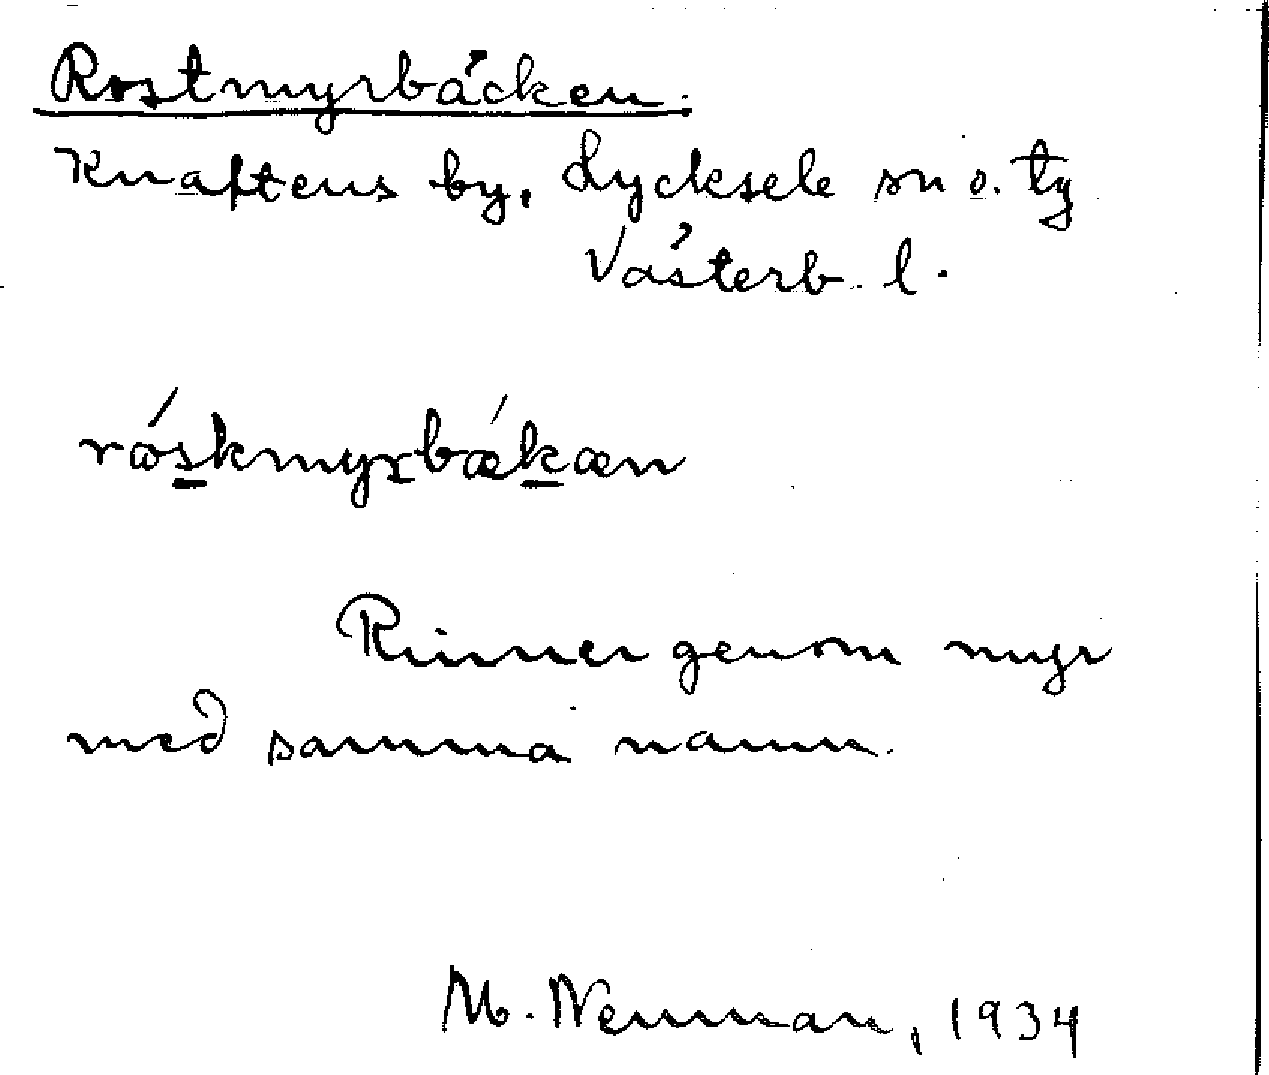 Rostmyrbäcken.
Knaftens by, Lycksele sn o. tg
Västerb. l.
råskmyrbækæn
Rinner genom myr
med samma namn.
M. Neuman, 1934